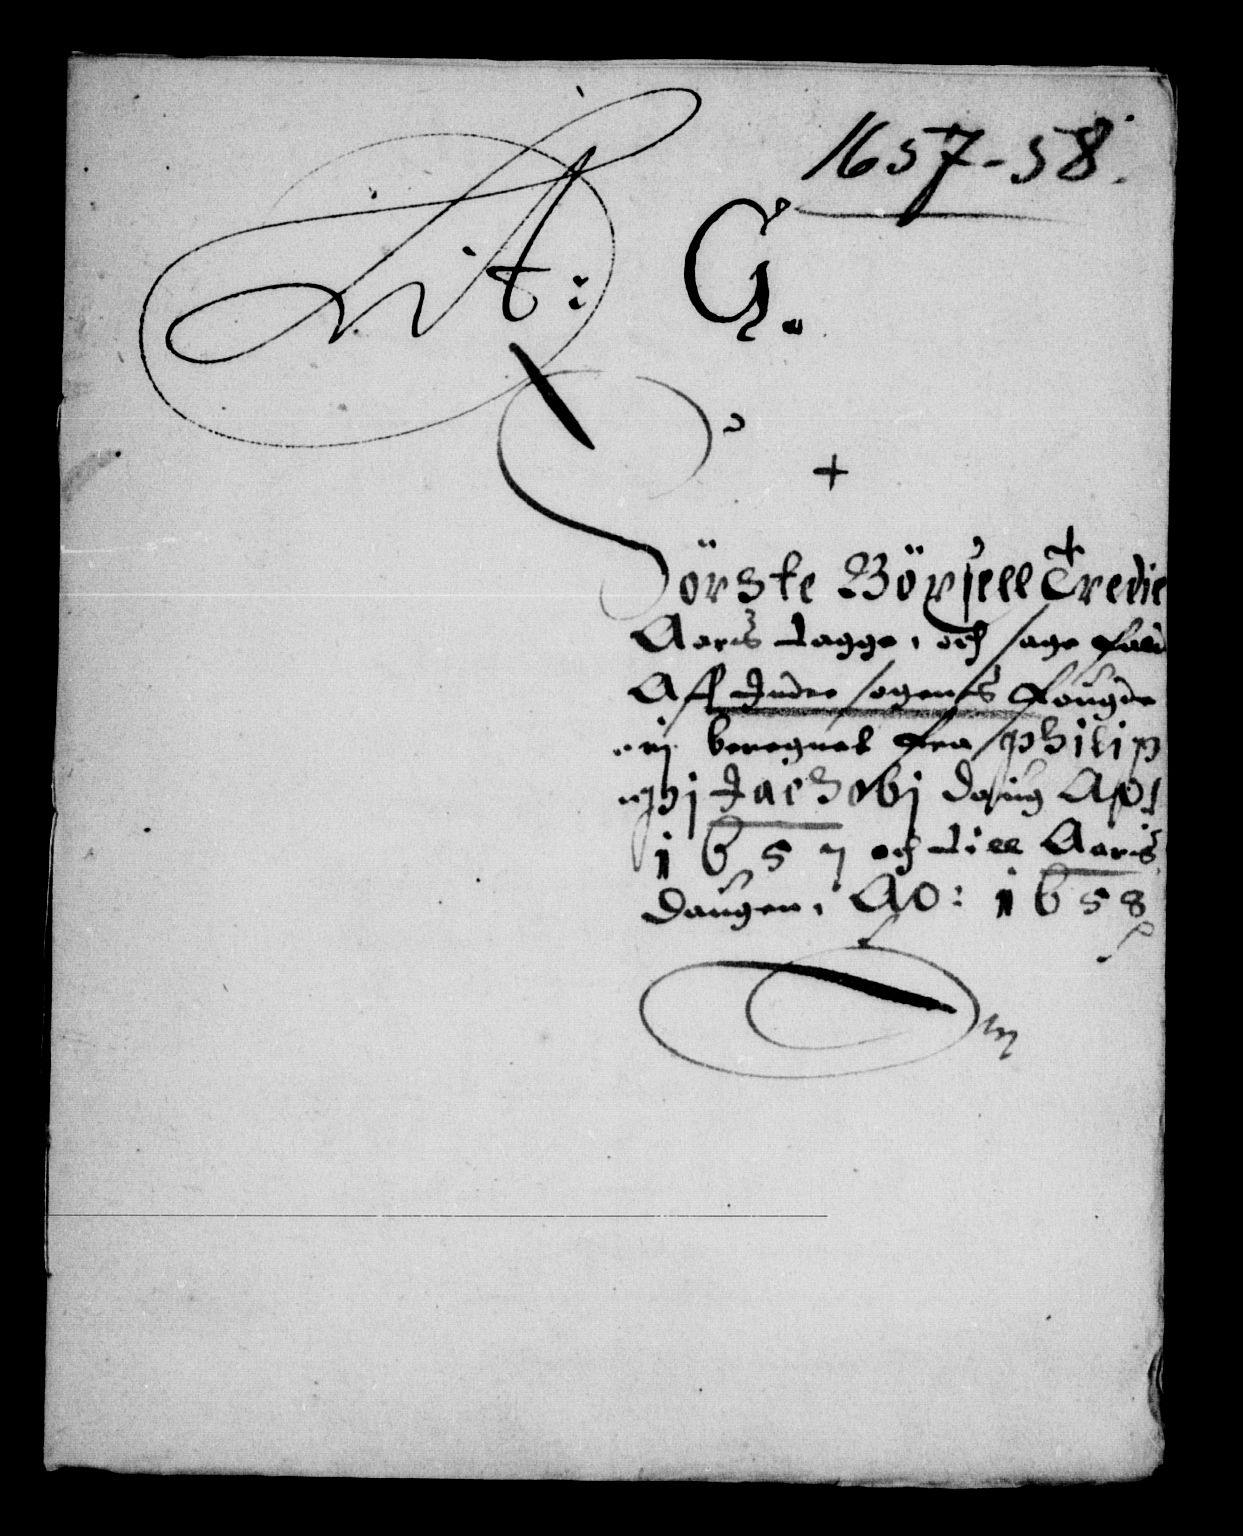 1657-58.
Lit: G.
+
Förste Böxsell Tredie
Aaris tagge, och sage fald
Aff Indre sogens fougde
rij beregnet fra philip
phj Jachobj daug Apl
1657 och till Aaris
daugen, Ao: 1658